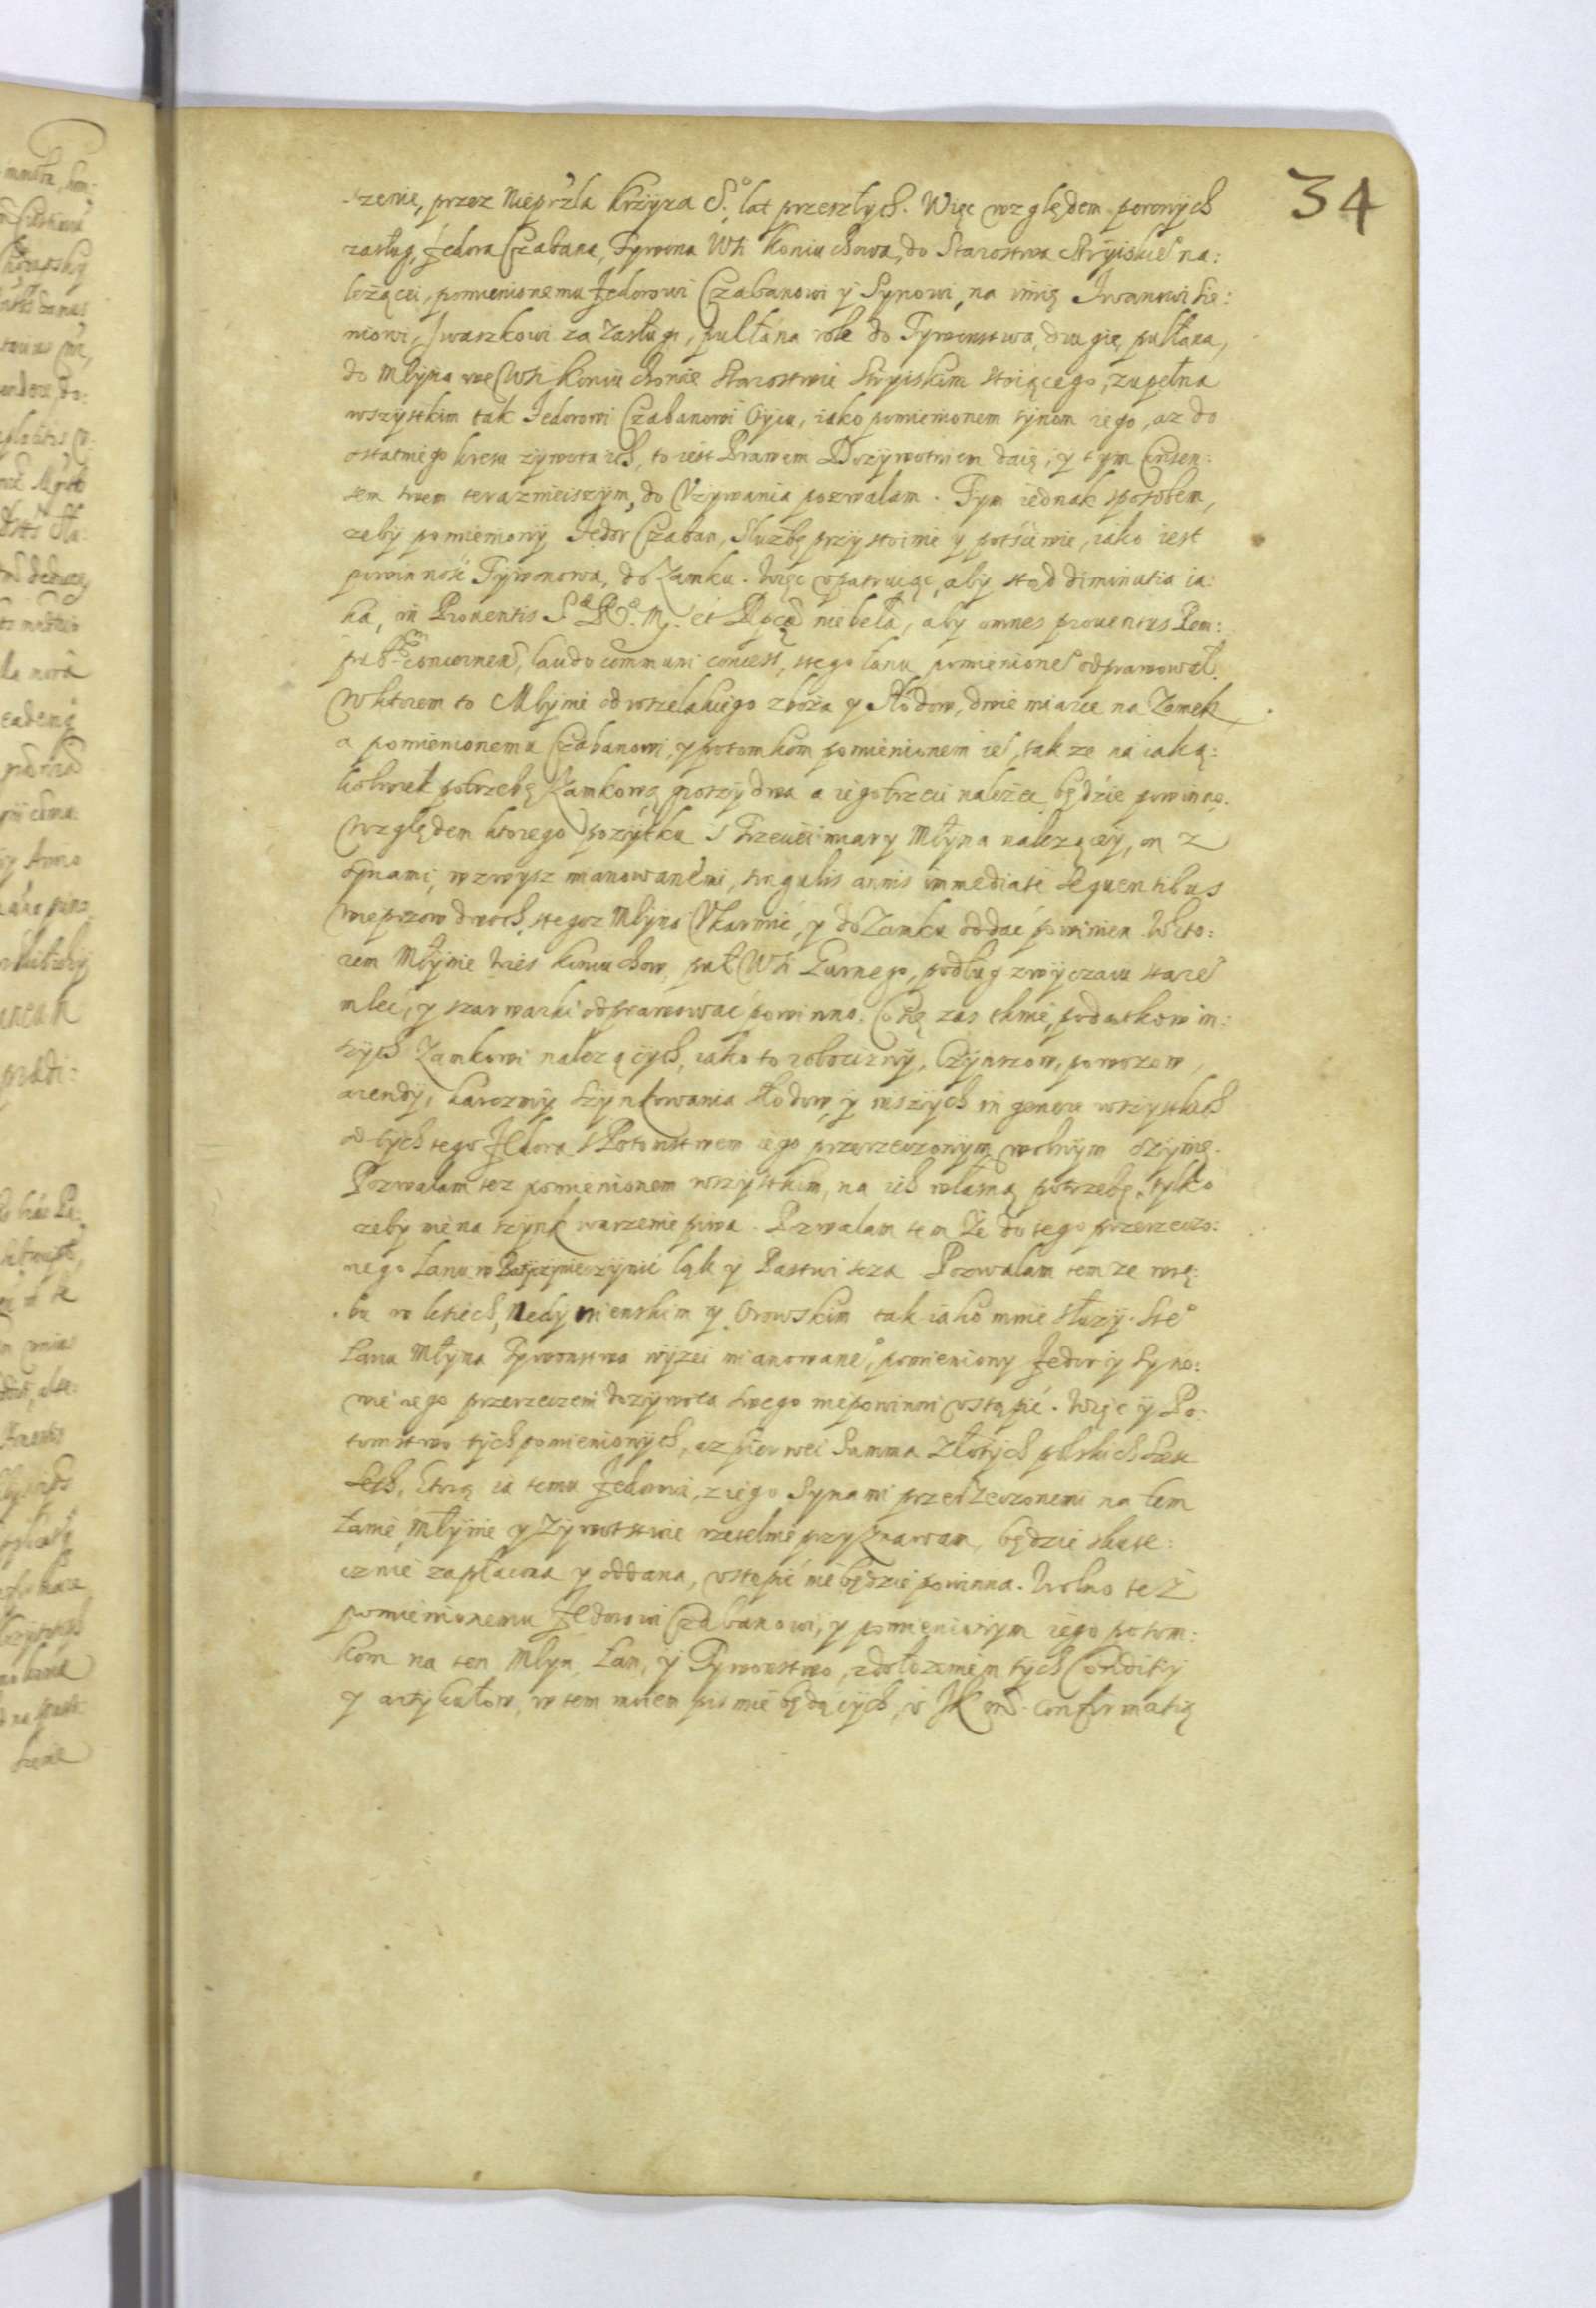 34
-zenie, przez Nieprzla Krzyza S:º lat przeszłych. Więc względem porowych
zasług, Fedora Czabana, Tywona Wsi Koniuchowa, do Starostwa Stryiskieº na:
leżącei, pomienionemu Fedorowi Czabanowi y Synowi, na imię Iwanowi Sie:
niowi, Iwaszkowi za Zasługi, pułłána role do Tywonstwa, drugię pułłana,
do Młyna we Wsi Koniuchowie Starostwie Stryiskim stoiącego, zupełna
wszystkim tak Fedorowi Czabanowi Oycu, iako pomienionem synom iego, az do
ostatniego kresu zywota ich, to iest Prawem Dozywotniem daię, y tym Consen:
sem swem terazniejszym, do Uzywania pozwalam. Tym iednak sposobem,
zeby pomieniony Fedor Czaban, Sluzbę przystoinie y poćsciwie, iako iest
powinność Tywonowa, do Zamku. Więc upatruiąc, aby stąd diminutia ia:
ka, in Prouentis S R M. et Rpcę niebeła, aby omnes prouentus Rem:
concernen, laudo communi concess, stego łanu pomienioneº odprawował.
W ktorem to Młynie od wszelakiego zboża y Słodow, dwie miarce na Zamek,
a pomienionemu Czabanowi, y potomkom pomienionem ieº, takze na iaką:
kolwiek potrzebę Zamkową groszy dwa a iego trzeci należec będzie powinno.
Względem ktorego pozytku s Trzeciei miary Młyna nalezącey, on z
synami, wzwysz mianowanemi, singulis annis immediate sequentibus
wieprzow dwoch, stegoz Młyna Ukarmić, y do Zamku oddać powinien. W kto:
rem Młynie wies Koniuchow, puł Wsi Gurnego, podług zwyczaiu stareº
mleć, y szarwarki odprawować powinno. Co się zas tknie, podatkow in:
szych Zamkowi nalezących, iako to robocizny, Czynszow, powozow,
arendy, karczmy, szynkowania słodow, y inszych in genere wszystkich
od tych tego Fedora s Potomstwem iego przerzeczonym wolnym czynię.
Pozwalam tez pomienionem wszystkim, na ich własną potrzebę, tylko
zeby nie na szynk warzenie piwa. Pozwalam tem Że do tego przerzeczo:
nego Łanu rozczynic łąk y Pastwiska Pozwalam tem ze wrę:
bu w lesiech, Nedymienskim y Orowskim tak iako mnie słuzy. Steº
Łana Młyna Tywonstwa wyzei mianowaneº, pomieniony Fedor y Syno:
wie iego przerzeczeni do zywota swego niepowinni ustąpić. Więc y Po:
tomstwo tych pomienionych, az pierwei Summa Złotych polskich szesc
Seth, ktorą ia temu Fedorowi, z iego Synami przerzeczonemi na tem
Łanie, Młynie y Tywonstwie rzetelnie przyznawam, będzie skute:
cznie zapłacona y oddana, ustepić nie będzie powinna. Wolno teŻ
pomienionemu Fedorowi Czabanowi, y pomienionym iego potom:
kom na ten Młyn, Łan, y Tywonstwo, zdołozeniem tych Conditiy
y artykułow, w tem moiem pismie będących, u JK confirmatią